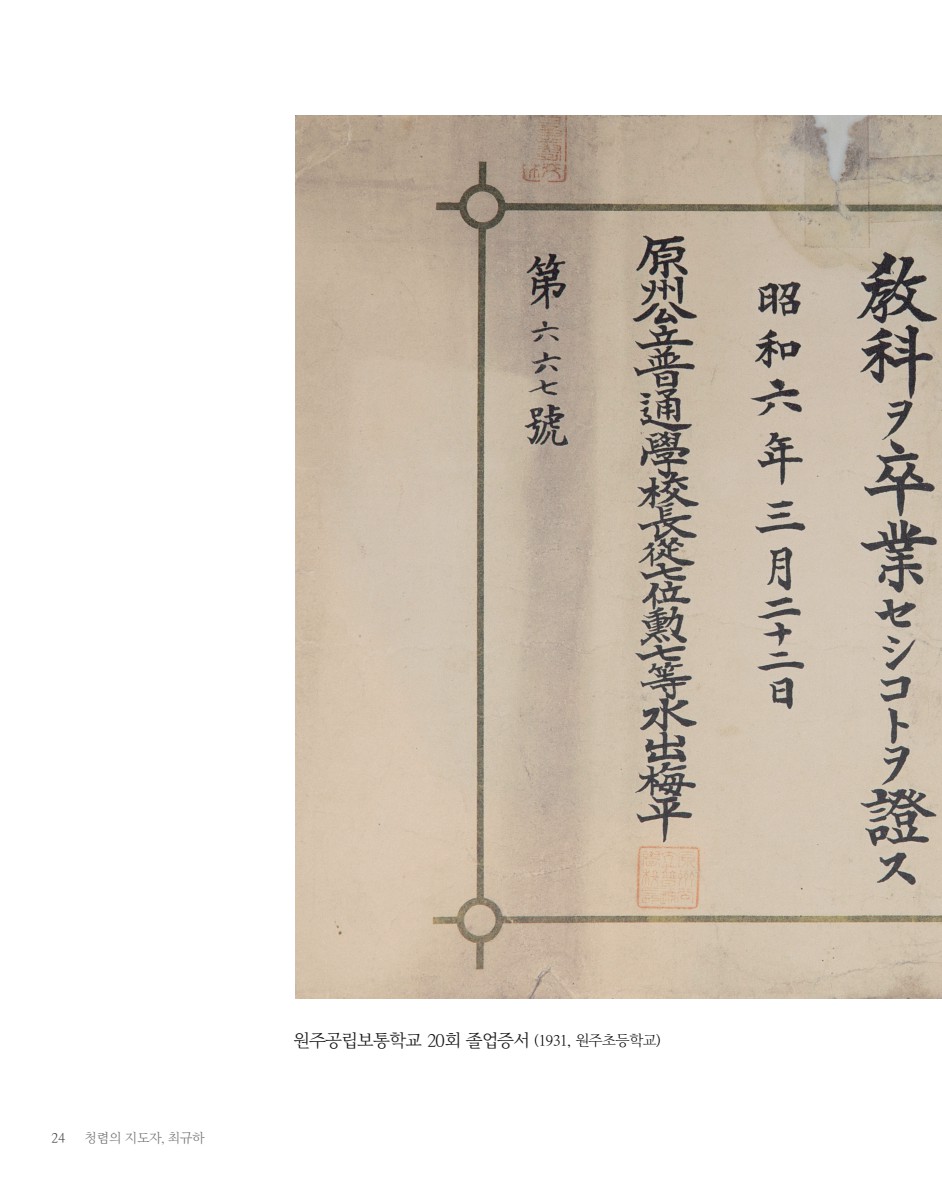 教科ヲ卒業セシコトヲ證ス
昭和六年三月二十二日
原州公立普通學校長從七位勲七等水出梅平
第六六七號
원주공립보통학교 20회 졸업증서 (1931, 원주초등학교)
24 청렴의 지도자, 최규하